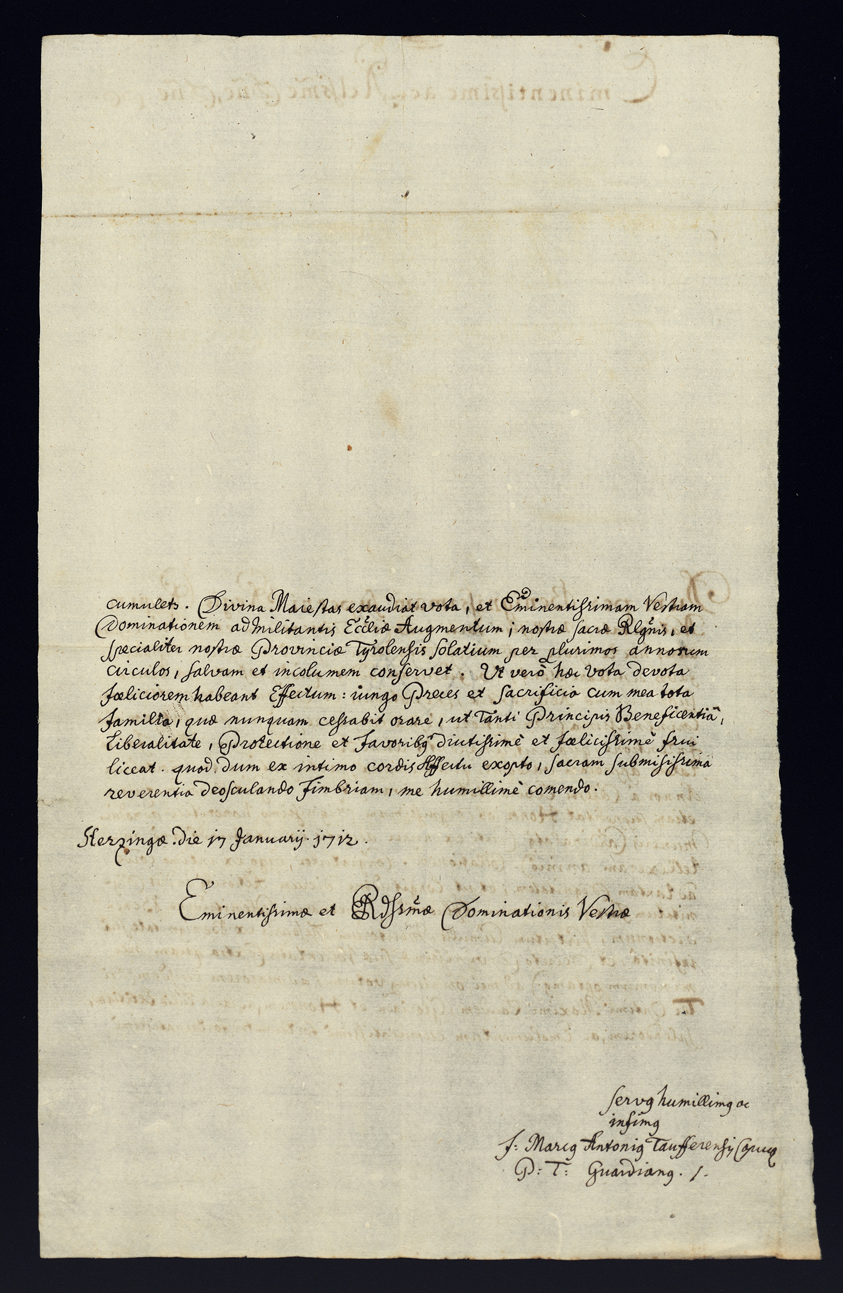 cumulets. Divina Maiestas exaudiat vota, et Eminentissimam Vestram
Dominationem ad Militantis Eccliæ Augmentum; nostræ sacræ Rlgnis, et
specialiter nostræ Provinciæ Tyrolensis solatium per plurimos annorum
circulos, salvam et incolumem conservet. Ut verò hæc Vota devota
fæliciorem habeant Effectum: iungo Preces et sacrificia cum mea tota
familia, quæ nunquam cessabit orare, ut Tanti Principis Beneficentiâ,
Liberalitate, Protectione et Favoribq diutissimè et fælicissimè frui
liceat. quod dum ex intimo cordis Affectu exopto, sacram submississima
reverentia deosculando Fimbriam, me humillimè comendo.
die 17 Januarij 1712.
Eminentissimæ et Rdssmæ Dominationis Vestræ
servq humillimq ac
infimq
f: Marcq Antoniq Taufferensis
P: T: Guardianq.